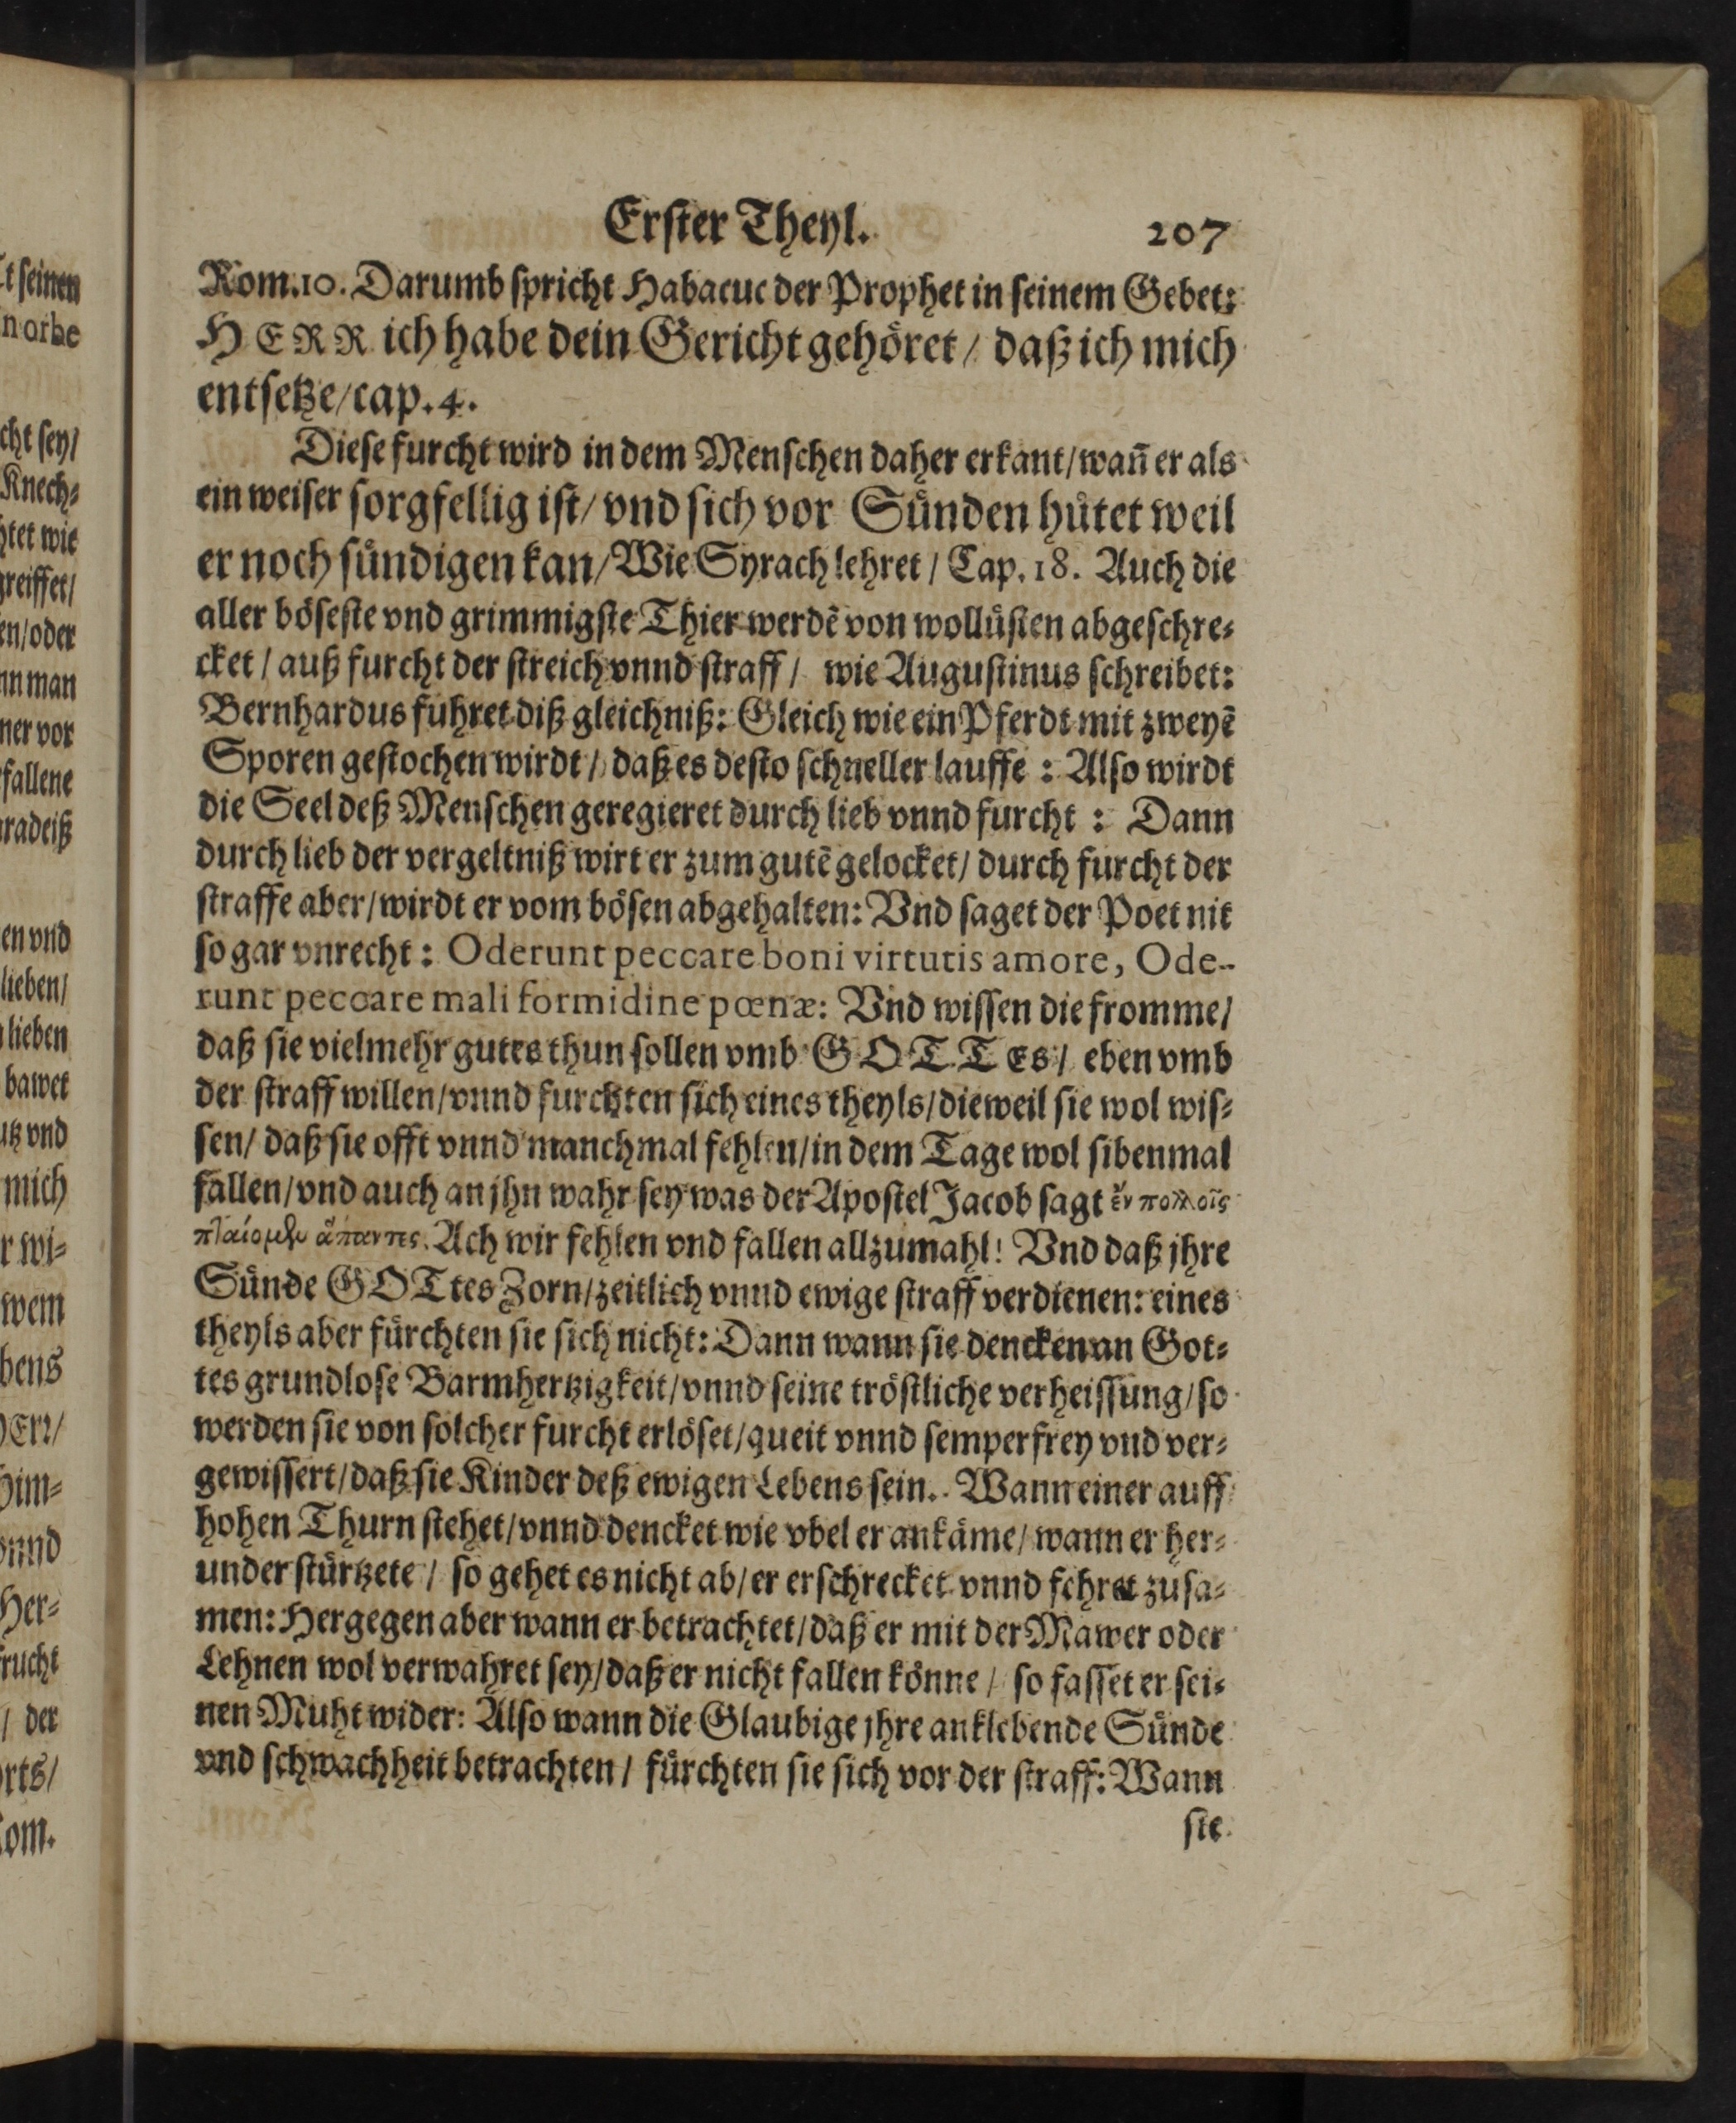 Erster Theyl. 207
Rom. 10. Darumb spricht Habacuc der Prophet in seinem Gebet:
HERR ich habe dein Gericht gehöret / daß ich mich
entsetze / cap. 4.
Diese furcht wird in dem Menschen daher erkant / wañ er als
ein weiser sorgfellig ist / vnd sich vor Sünden hütet weil
er noch sündigen kan / Wie Syrach lehret / Cap. 18. Auch die
aller böseste vnd grimmigste Thier werdē von wollüsten abgeschre-
cket / auß furcht der streich vnnd straff / wie Augustinus schreibet:
Bernhardus führet diß gleichniß: Gleich wie ein Pferdt mit zweyē
Sporen gestochen wirdt / daß es desto schneller lauffe : Also wirdt
die Seel deß Menschen geregieret durch lieb vnnd furcht : Dann
durch lieb der vergeltniß wirt er zum gutē gelocket / durch furcht der
straffe aber / wirdt er vom bösen abgehalten: Vnd saget der Poet nit
so gar vnrecht : Oderunt peccare boni virtutis amore, Ode-
runt peccare mali formidine pœnæ: Vnd wissen die fromme /
daß sie vielmehr gutes thun sollen vmb GOTTES / eben vmb
der straff willen / vnnd furchten sich eines theyls / dieweil sie wol wis-
sen / daß sie offt vnnd manchmal fehlen / in dem Tage wol sibenmal
fallen / vnd auch an jhn wahr sey was der Apostel Jacob sagt ἐν πολλοῖς
πταίομεν ἅπαντες. Ach wir fehlen vnd fallen allzumahl! Vnd daß jhre
Sünde GOTtes Zorn / zeitlich vnnd ewige straff verdienen: eines
theyls aber fürchten sie sich nicht: Dann wann sie dencken an Got-
tes grundlose Barmhertzigkeit / vnnd seine tröstliche verheissung / so
werden sie von solcher furcht erlöset / queit vnnd semperfrey vnd ver-
gewissert / daß sie Kinder deß ewigen Lebens sein. Wann einer auff
hohen Thurn stehet / vnnd dencket wie vbel er ankäme / wann er her-
under stürtzete / so gehet es nicht ab / er erschrecket vnnd fehret zusa-
men: Hergegen aber wann er betrachtet / daß er mit der Mawer oder
Lehnen wol verwahret sey / daß er nicht fallen könne / so fasset er sei-
nen Muht wider: Also wann die Glaubige jhre anklebende Sünde
vnd schwachheit betrachten / fürchten sie sich vor der straff: Wann
sie